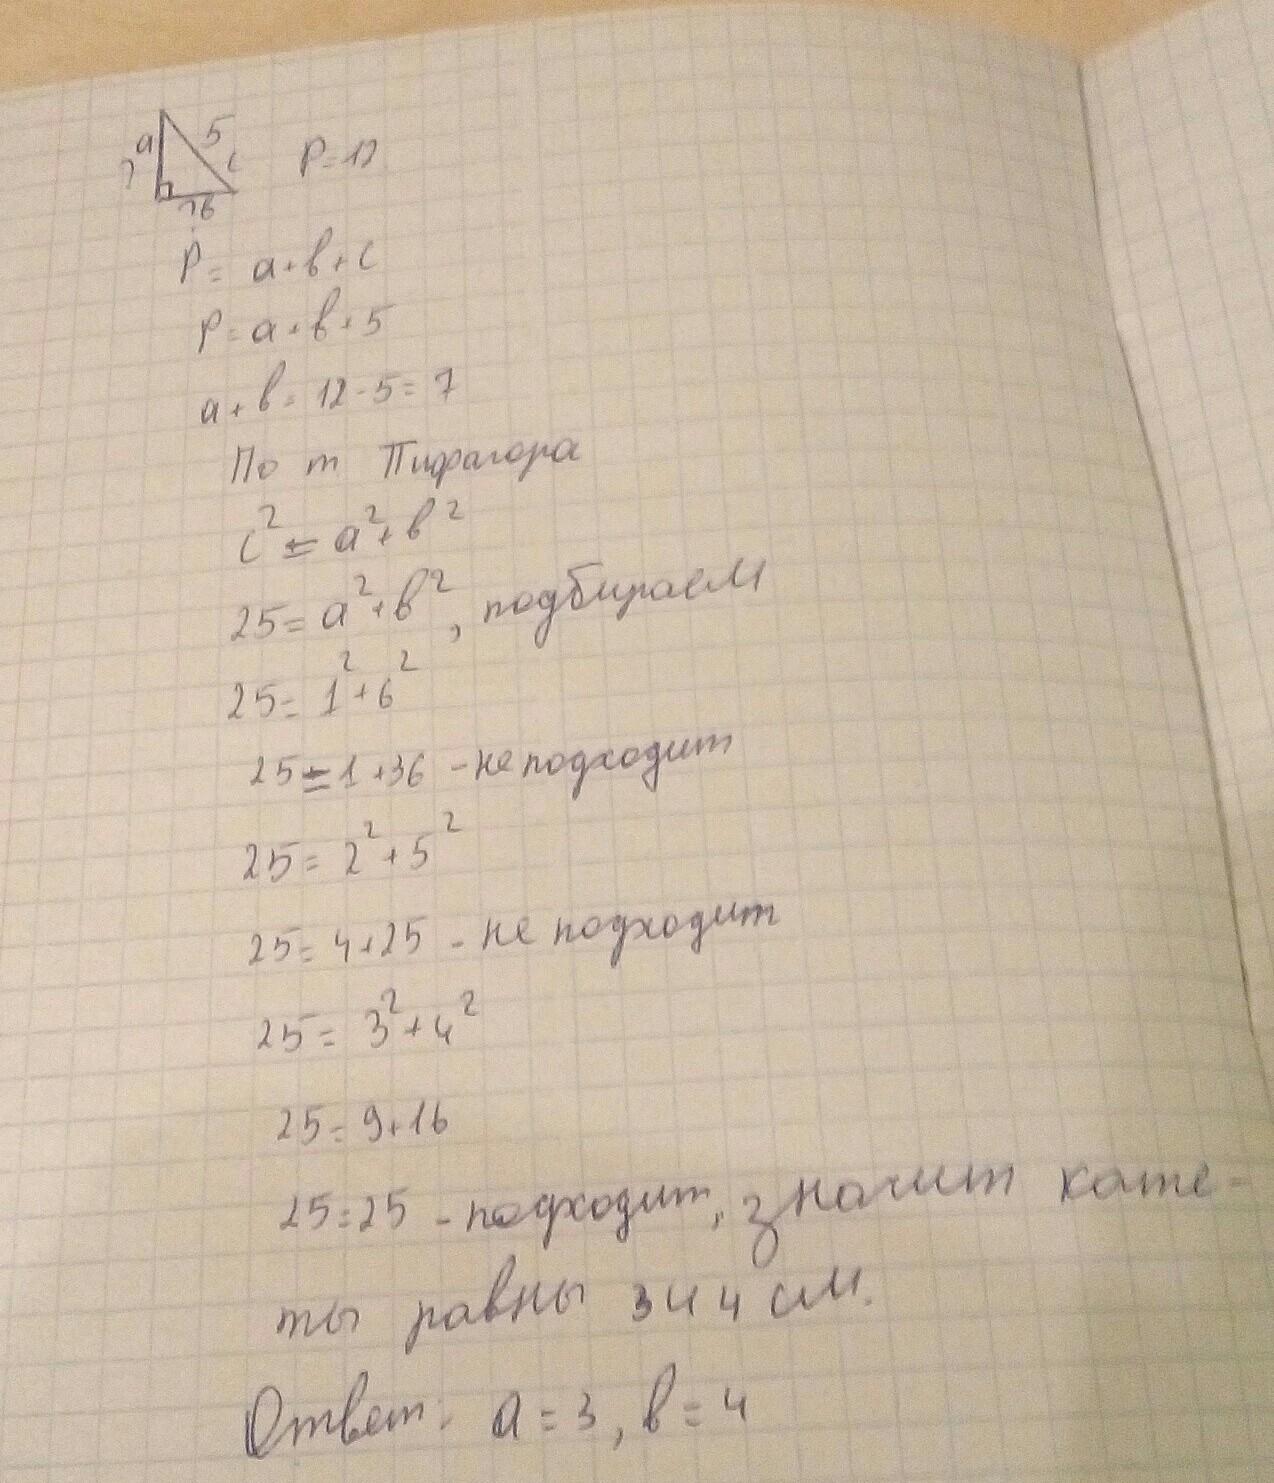 a 5
? c P=12
?в
P= a+в+c
P=a+в+5
a+в=12-5=7
По т Пифагора
c²=a²+в²
25=a²+в², подбираем
25=1²+6²
25=1+36 - не подходит
25=2²+5²
25=4+25 - не подходит
25=3²+4²
25=9+16
25=25 - подходит, значит кате-
ты равны 3 и 4 см.
Ответ: a=3, в=4